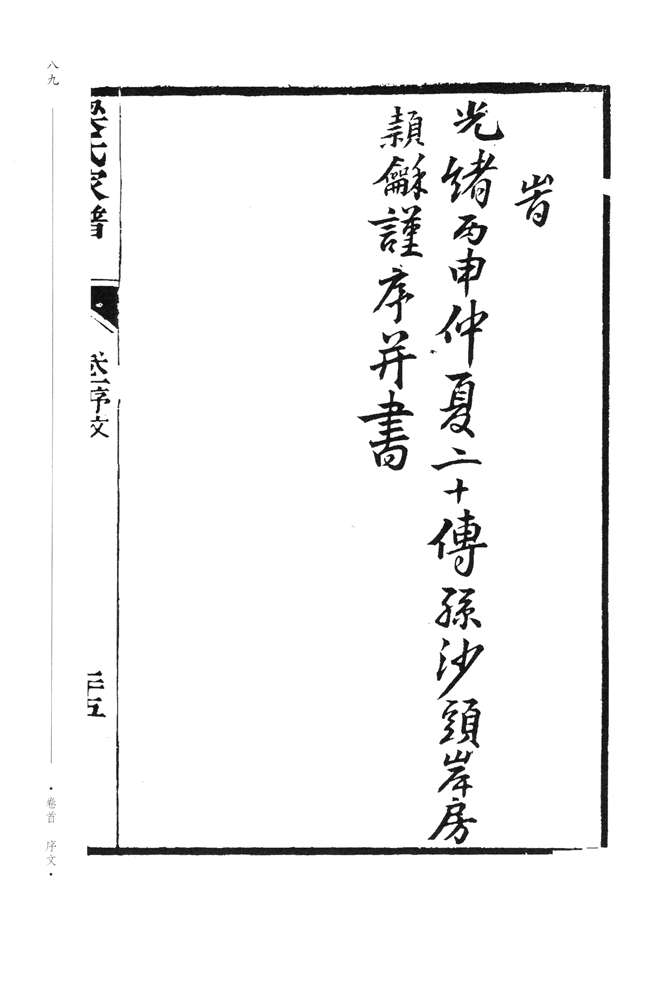 旹
光緒丙申仲夏二十傳孫沙頭岸房
頴龢謹序并書
氏家譜
卷一序文
八九
·卷首 序文·